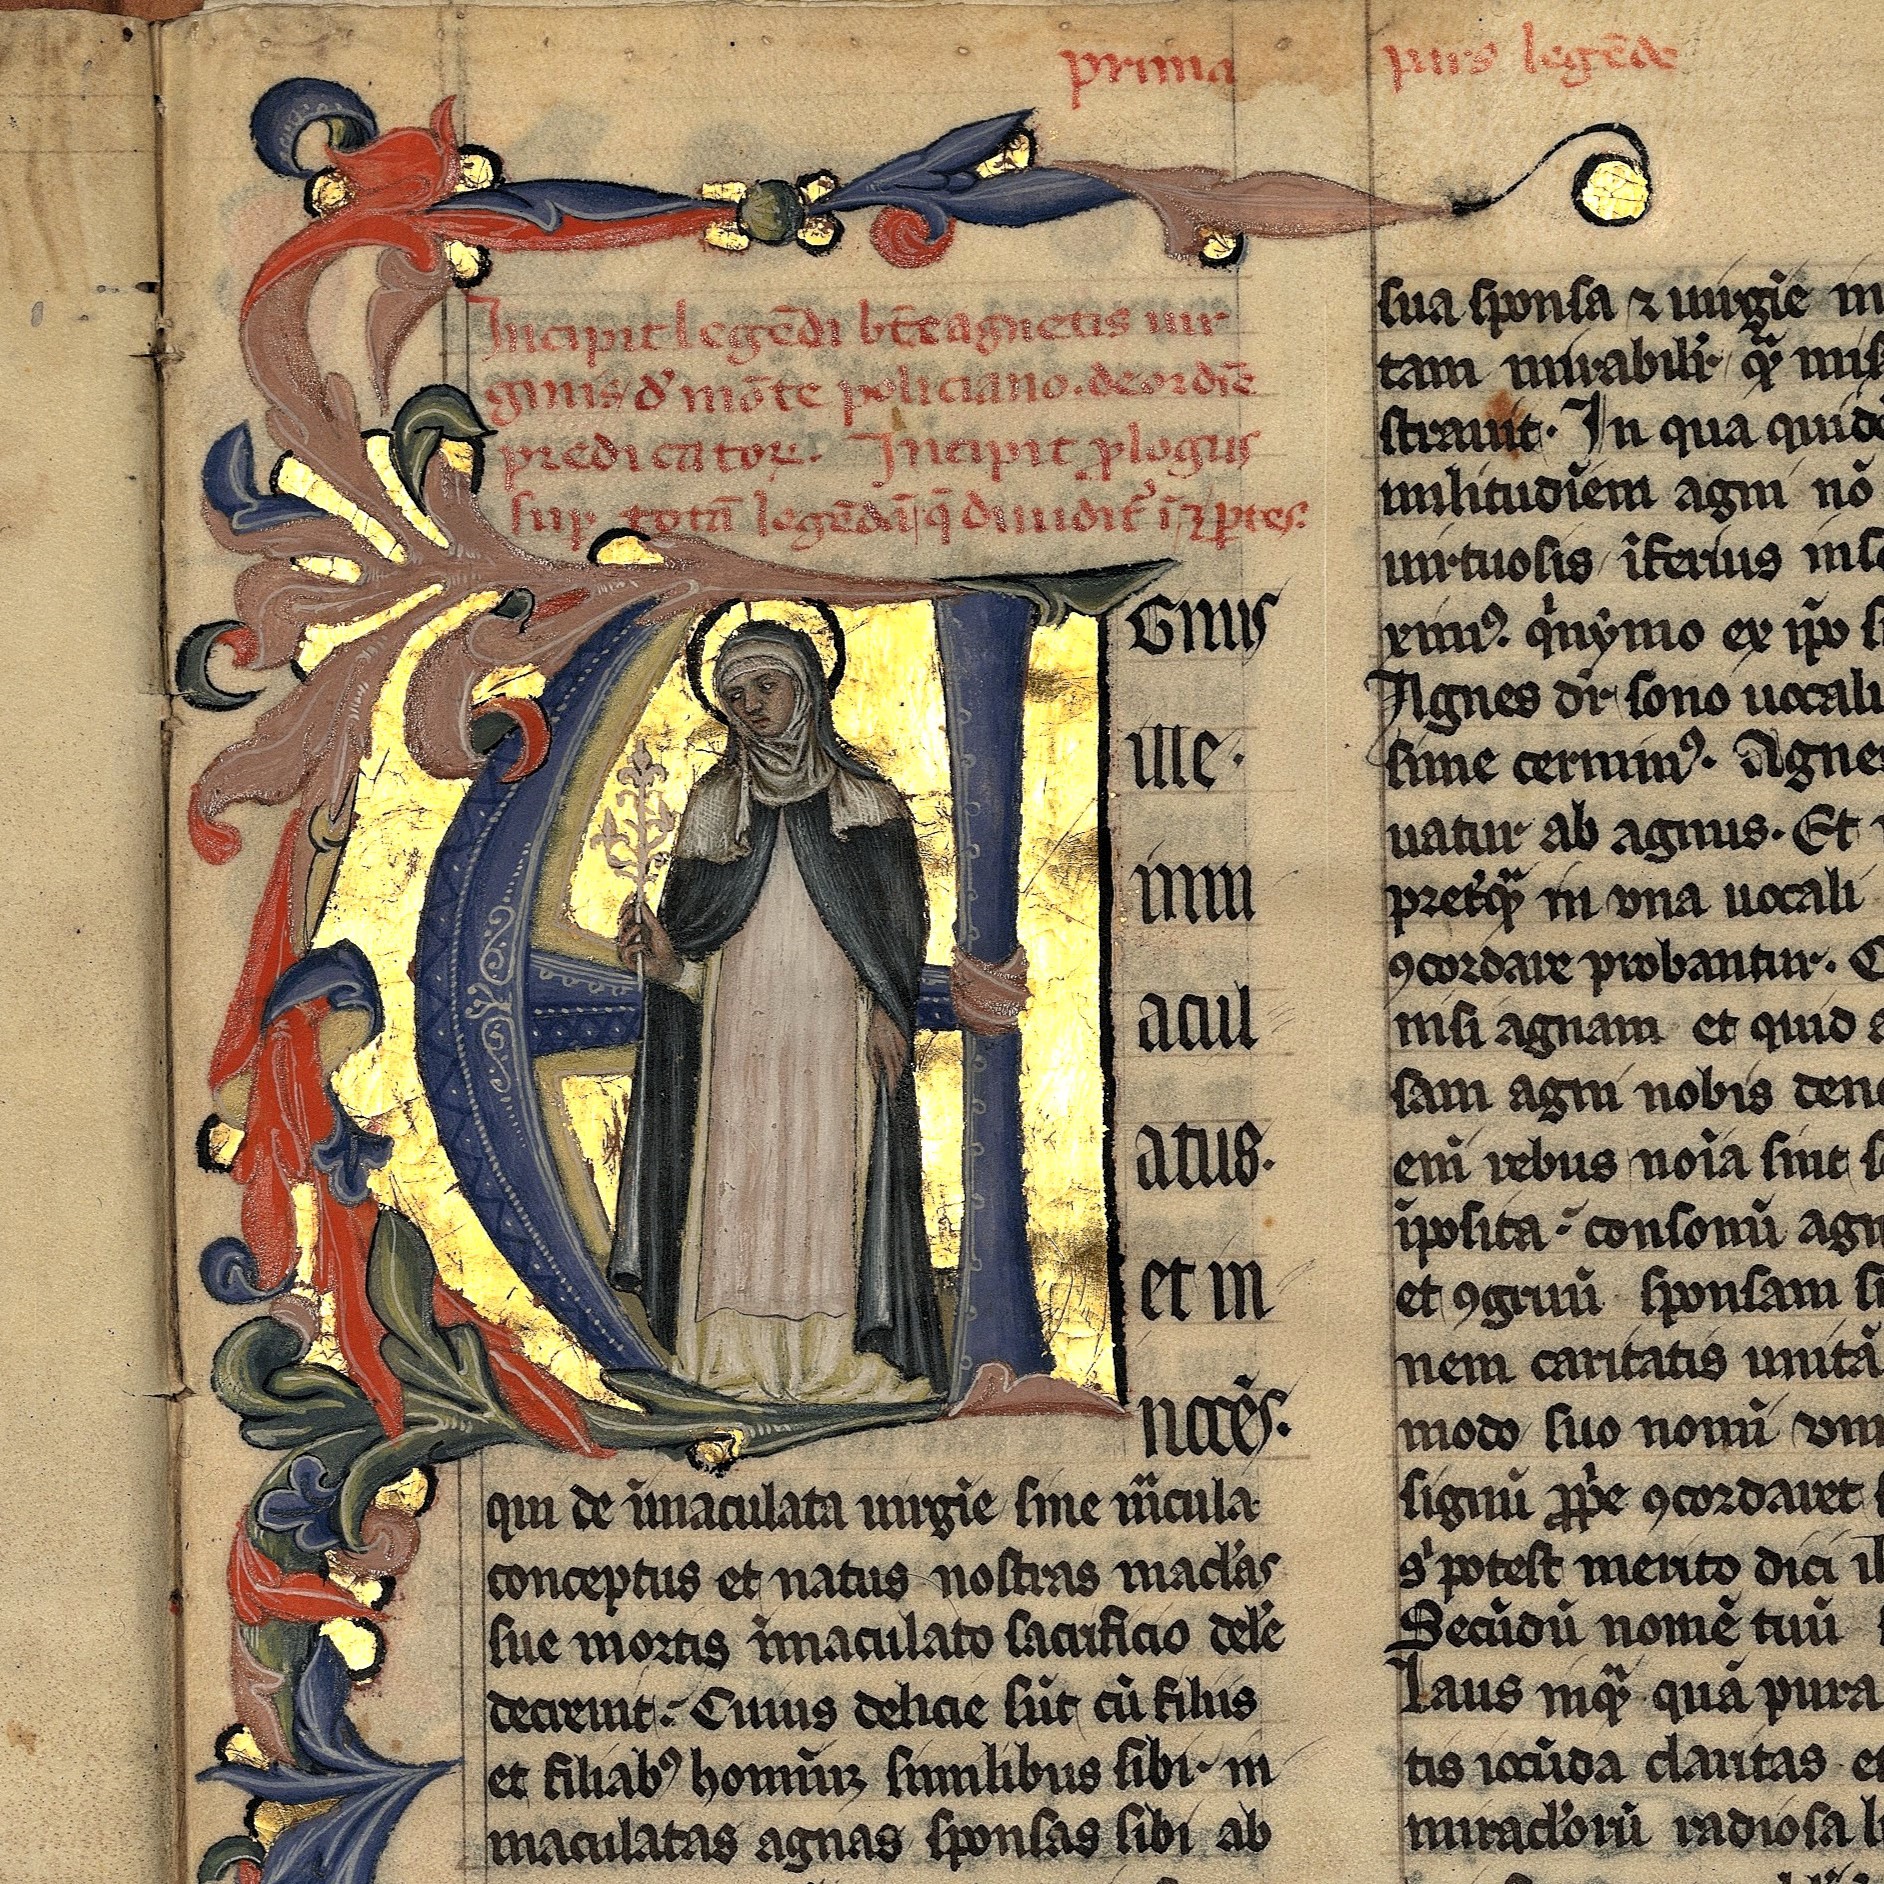 prima pars legēde
Incipit legēdi btē agnetis uir
ginis d' mōte policiano. de ordīe
predicator. Incipit plogus
sup totā legēdā q̄ diuidit' ī 2 ptes.
Agnus
ille.
inm
acul
atus.
et in
nocēs.
qui de īmaculata uirgīe sine m̄cula
conceptus et natus nostras macl'as
sue mortis īmaculato sacrificio del'e
decreuit. Cuius delicie sūt cū filiis
et filiab9 hominū similibus sibi. in
maculatas agnas sponsas sibi ab
sua sponsa 2 uirgīe in
tam mirabilr. q̄ mis
strauit. In qua quide
militudīem agni nō
uirtuosis īferius inse
rim9. q'nymo ex ip̄o
Agnes dr̄ sono uocali
sime cernim9. Agne
uatur ab agnus. Et
pret'q̄ in una uocali
9cordare probantur.
nisi agnam et quid
sam agni nobis deno
enī rebus noīa sint
īposita consonū agn
et 9gruū sponsam
nem caritatis unitā
modo suo nomī
signū p̄p̄e 9cordaret
s' potest merito dici
Secūdū nomē tuū
laus inq̄ quā pura
tis iocūda claritas et
miracl'orū radiosa